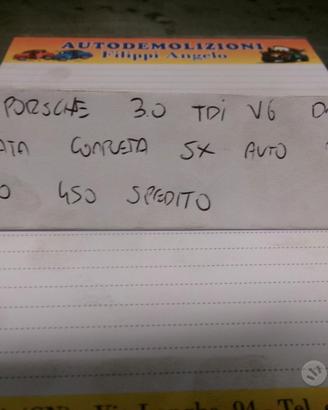 AUTODEMOLIZIONI
Filippi Angelo
PORSCHE 3.0 TDI V6
ATA COMPLETA SX AUTO
O 450 SPEDITO